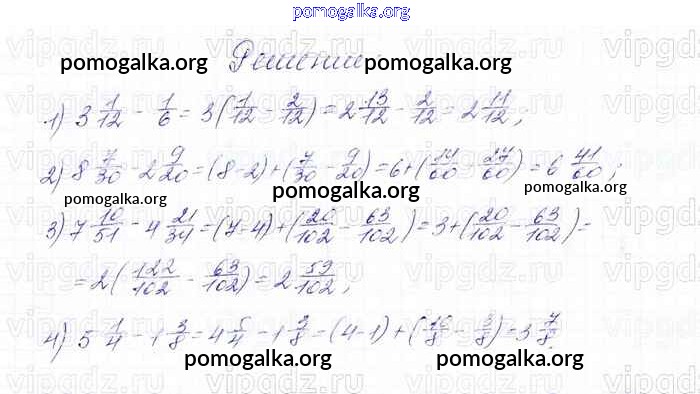 pomogalka.org
Решение
pomogalka.org pomogalka.org
1) 3 1/12 - 1/6 = 3(1/12 - 2/12) = 2 13/12 - 2/12 = 2 11/12;
2) 8 7/30 - 2 9/20 = (8-2)+(7/30 - 9/20) = 6+(14/60 - 27/60) = 6 41/60;
pomogalka.org pomogalka.org pomogalka.org
3) 7 10/51 - 4 21/34 = (7-4)+(20/102 - 63/102) = 3+(20/102 - 63/102) =
= 2(122/102 - 63/102) = 2 59/102;
4) 5 1/4 - 1 3/8 = 4 5/4 - 1 3/8 = (4-1)+(10/8 - 3/8) = 3 7/8.
pomogalka.org pomogalka.org
vipgdz.ru vipgdz.ru vipgdz.ru vipgdz.ru